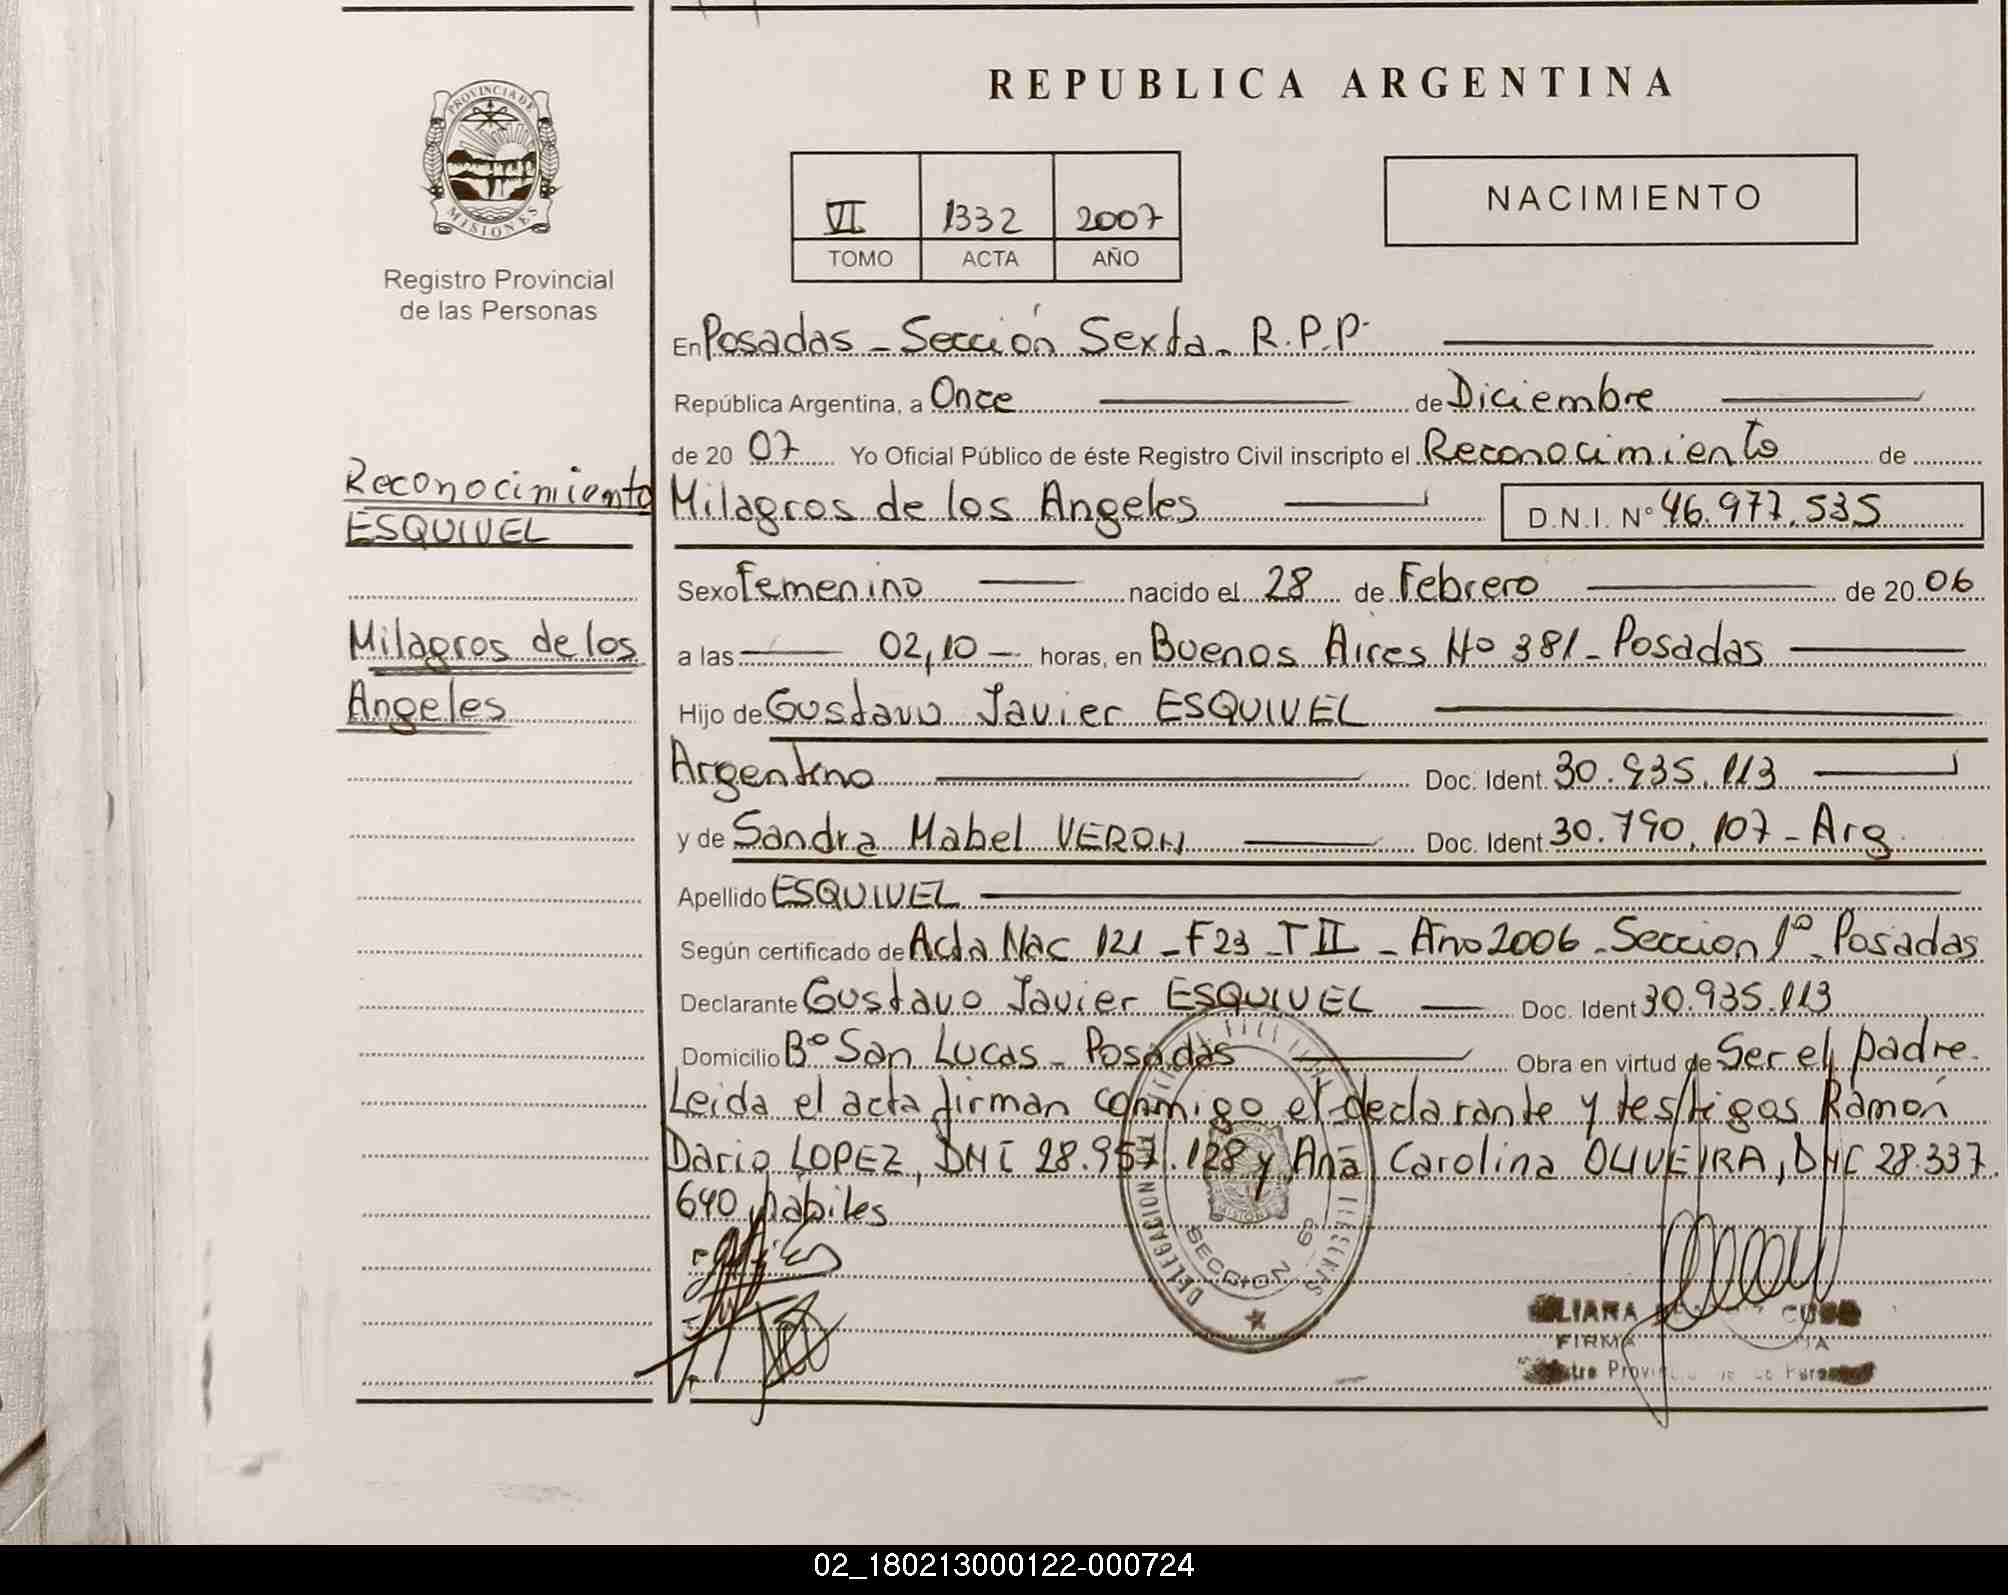 REPUBLICA ARGENTINA
PROVINCIA DE
MISIONES
Registro Provincial
de las Personas
VI 1332 2007
TOMO ACTA AÑO
NACIMIENTO
En Posadas - Sección Sexta - R.P.P.
República Argentina, a Once de Diciembre
de 20 07 Yo Oficial Público de éste Registro Civil inscripto el Reconocimiento de
Milagros de los Angeles D.N.I. Nº 46.977.535
Reconocimiento
ESQUIVEL
Milagros de los
Angeles
Sexo Femenino nacido el 28 de Febrero de 20 06
a las 02,10 horas, en Buenos Aires Nº 381 - Posadas
Hijo de Gustavo Javier ESQUIVEL
Argentino Doc. Ident. 30.935.113
y de Sandra Mabel VERON Doc. Ident. 30.790.107 - Arg.
Apellido ESQUIVEL
Según certificado de Acta Nac 121 - F23 - T II - Año 2006 - Seccion 1º - Posadas
Declarante Gustavo Javier ESQUIVEL Doc. Ident 30.935.113
Domicilio Bº San Lucas - Posadas Obra en virtud de Ser el padre.
Leida el acta firman conmigo el declarante y testigos Ramón
Dario LOPEZ, DNI 28.957.128 y Ana Carolina OLIVEIRA, DNI 28.337.
640 habiles
DELEGACION
SECCION 6ª
FIRMA
02_180213000122-000724